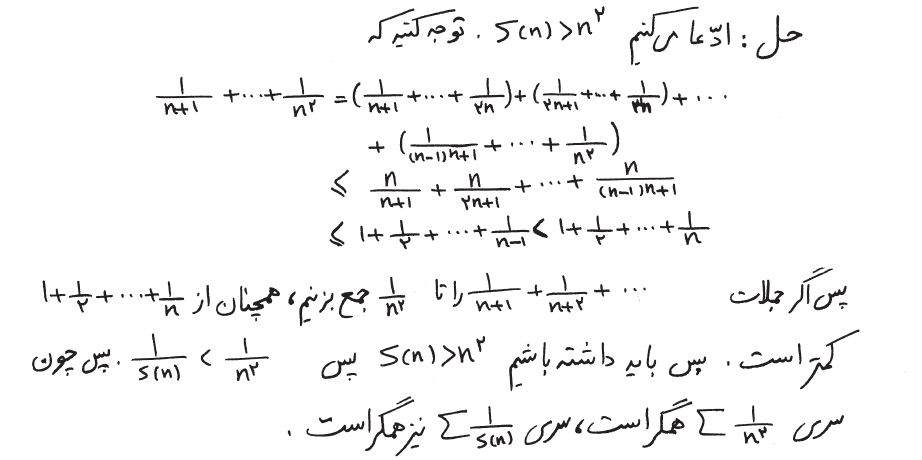 حل: ادّعا می‌کنیم S(n) > n^۲. توجه کنید که
1/(n+1) + ⋯ + 1/n^۲ = (1/(n+1) + ⋯ + 1/۲n) + (1/(۲n+1) + ⋯ + 1/۳n) + ⋯
+ (1/((n-1)n+1) + ⋯ + 1/n^۲)
≤ n/(n+1) + n/(۲n+1) + ⋯ + n/((n-1)n+1)
≤ 1 + 1/۲ + ⋯ + 1/(n-1) < 1 + 1/۲ + ⋯ + 1/n
پس اگر جملات 1/(n+1) + 1/(n+۲) + ⋯ را تا 1/n^۲ جمع بزنیم، همچنان از 1 + 1/۲ + ⋯ + 1/n
کمتر است. پس باید داشته باشیم S(n) > n^۲ پس 1/S(n) < 1/n^۲. پس چون
سری ∑ 1/n^۲ همگراست، سری ∑ 1/S(n) نیز همگراست.